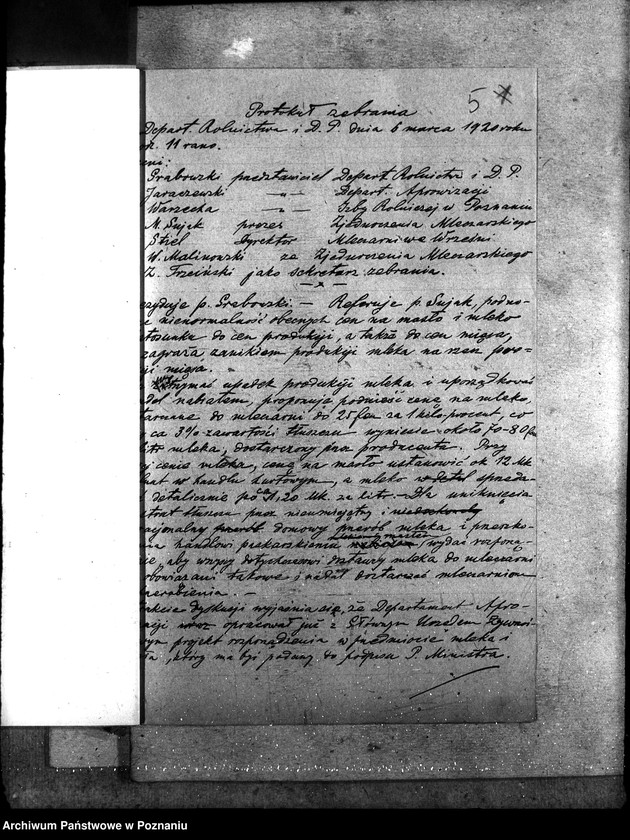 5
Protokuł zebrania
Depart. Rolnictwa i D. P. dnia 6 marca 1920 roku
11 rano.
eni:
Grabowski przedstawiciel Depart. Rolnictw. i D. P.
Jaraczewski —"— Depart. Aprowizacji
Warzecha —"— Izby Rolniczej w Poznaniu
M. Sujak prezes Zjednoczenia Mleczarskiego
Stiel Dyrektor Mleczarni we Wrześni
W. Malinowski ze Zjednoczenia Mleczarskiego
Z. Trzciński jako sekretarz zebrania.
zyduje p. Grabowski. — Referuje p. Sujak, podno-
nienormalność obecnych cen na masło i mleko
stosunku do cen produkcji, a także do cen mięsa,
zagraża zanikiem produkcji mleka na rzecz pro-
ji mięsa.
trzymać upadek produkcji mleka i uporządkować
del nabiałem, proponuje podnieść cenę na mleko,
tarczane do mleczarni do 25 fen za 1 kilo procent, co
ca 3% zawartości tłuszczu wyniesie około 70-80 fn
litr mleka, dostarczony przez producenta. Przy
j cenie mleka, cenę na masło ustanowić ok 12 Mk
w handlu hurtowym, a mleko w sprzeda-
detalicznie 1,20 Mk. za litr. — Dla uniknięcia
strat tłuszczu przez nieumiejętny i
racjonalny domowy przerób mleka i przeszko-
handlowi paskarskiemu wydać rozporzą-
aby wszyscy dotychczasowi dostawcy mleka do mleczarni
obowiązani takowe i nadal dostarczać mleczarniom
przerobienia. —
akcie dyskusji wyjaśnia się, że Departament Apro-
acji opracował już z Głównym Urzędem Żywnoś-
wym projekt rozporządzenia w przedmiocie mleka i
ła, który ma być podany do podpisu P. Ministra.
Archiwum Państwowe w Poznaniu